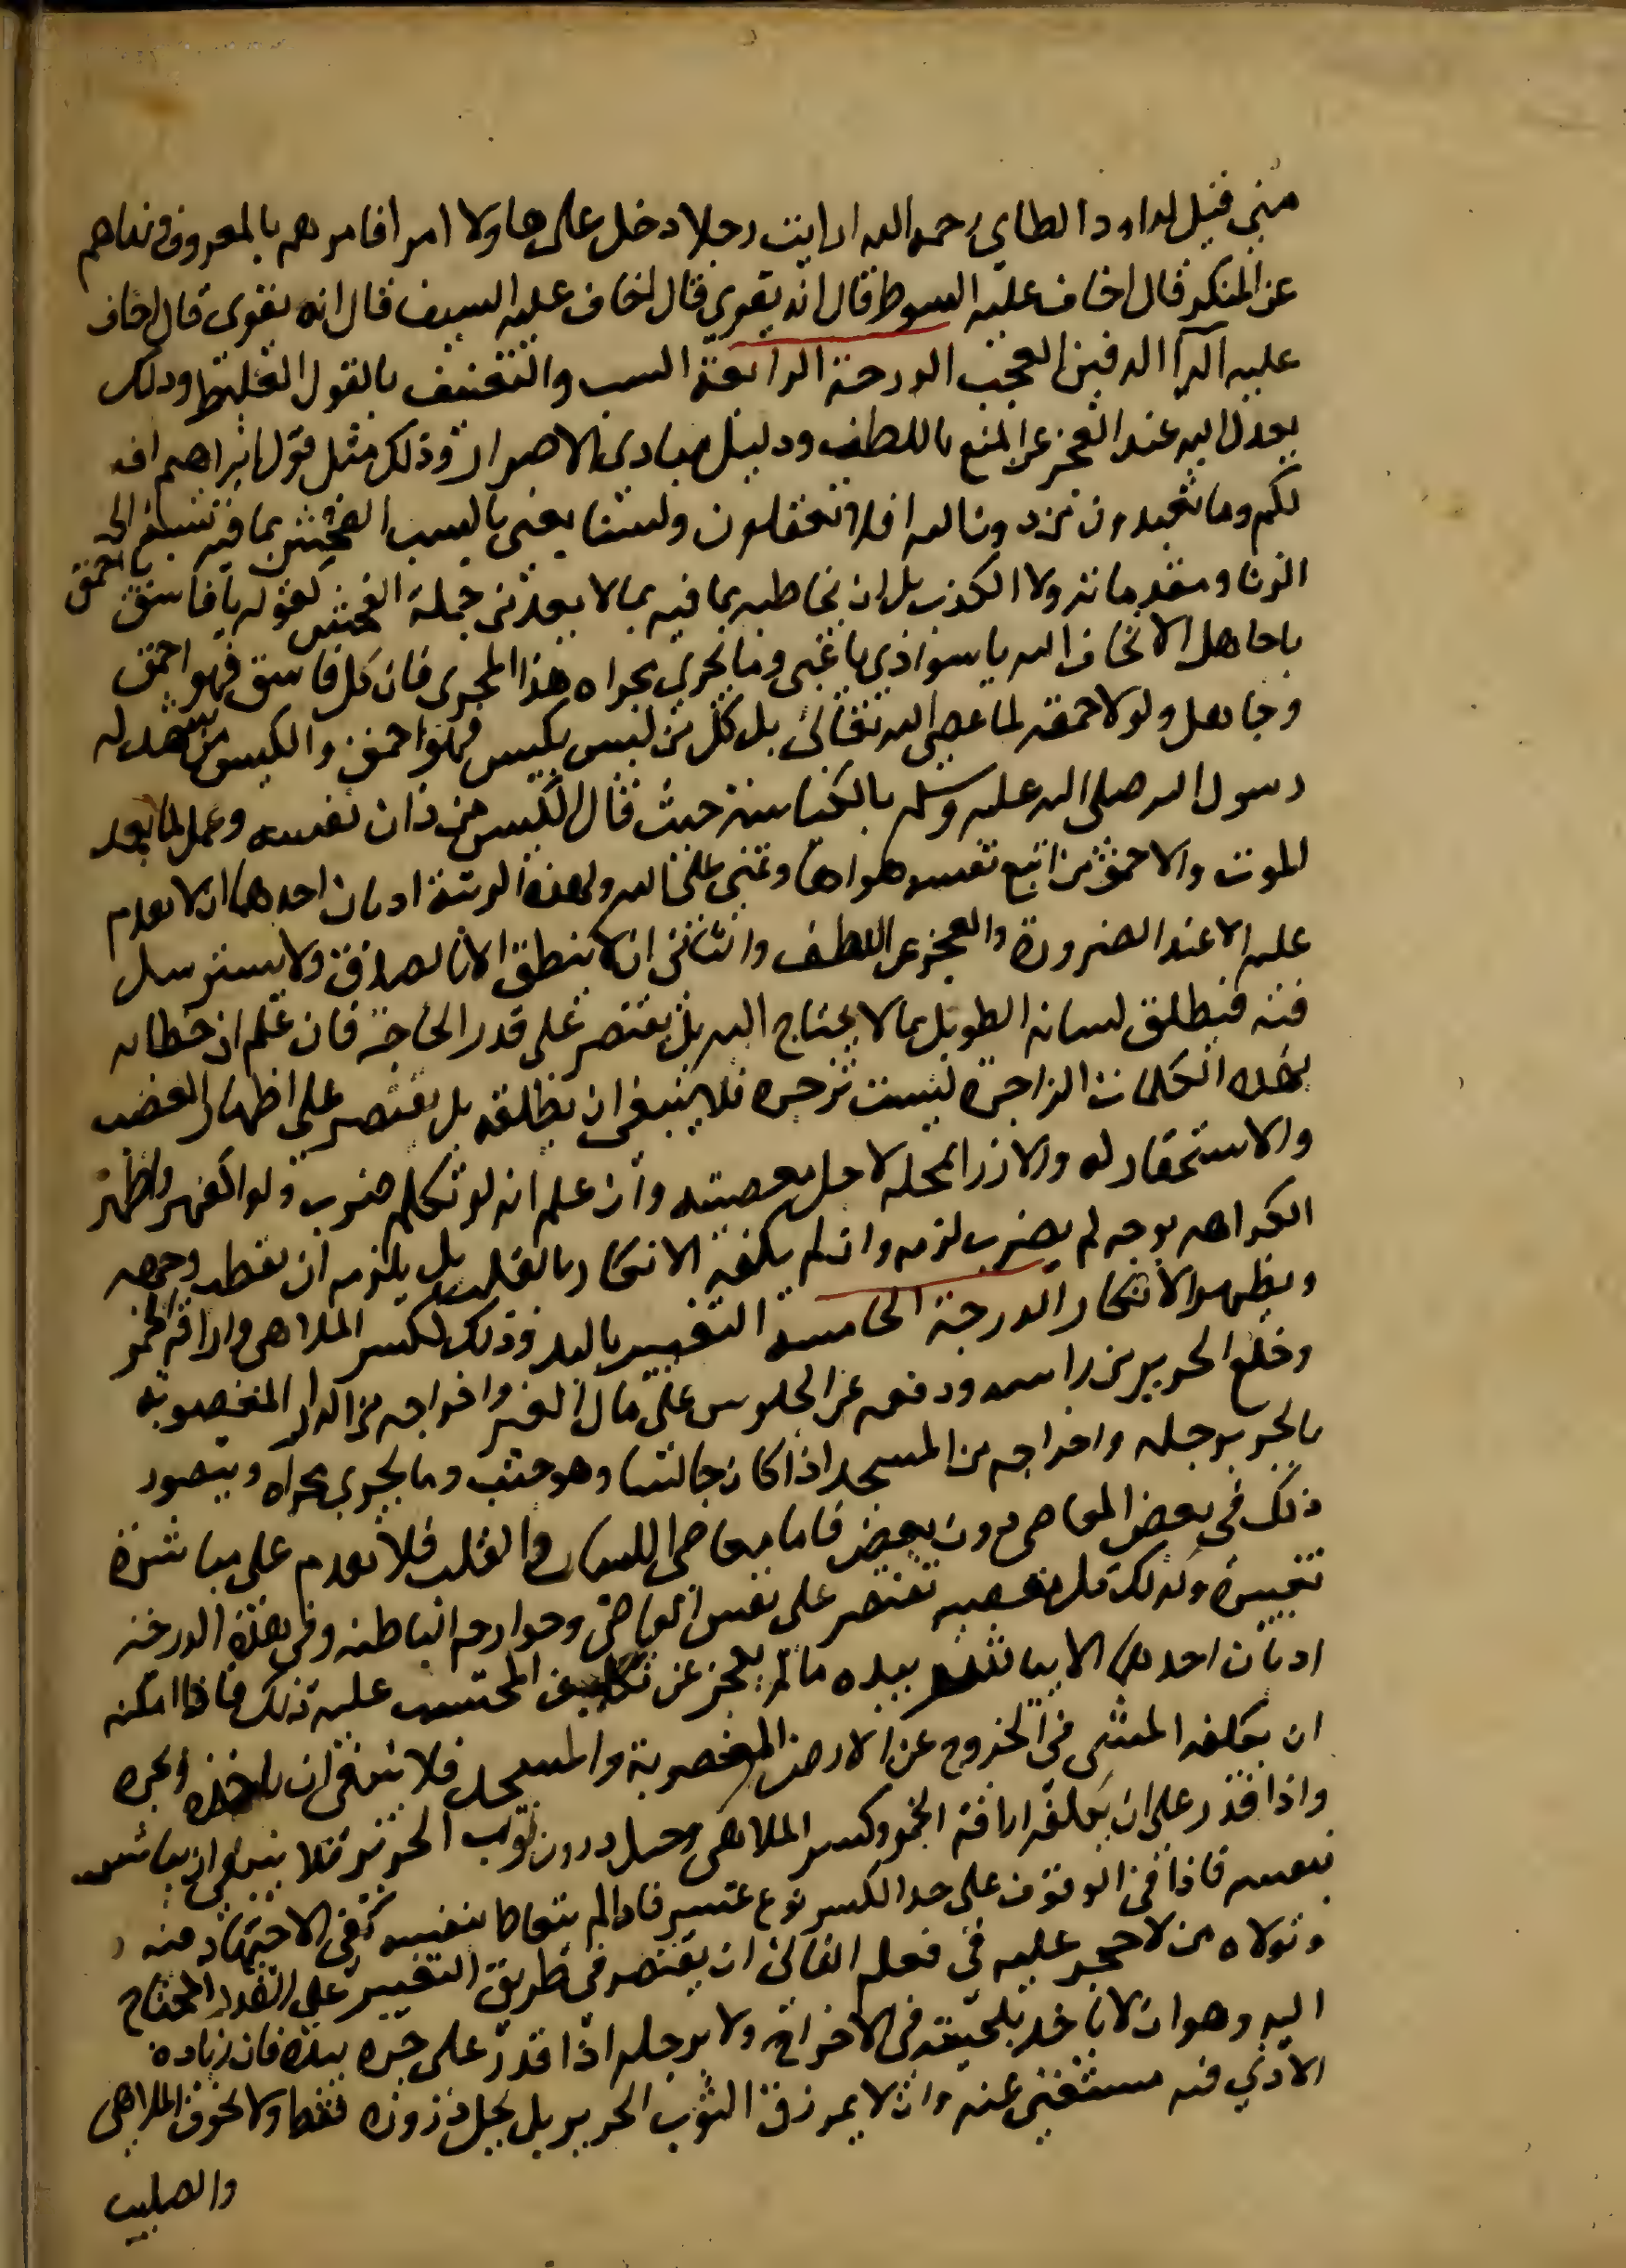 مني قيل لداود الطاي رحمه الله ارايت رجلا دخل على هاولا امرا فامرهم بالمعروف ونهاهم
عن المنكر قال اخاف عليه السوط قال انه يقوى قال اخاف عليه السيف قال انه يقوى قال اخاف
عليه الدآ الدفين العجب الدرجة الرابعة السب والتعنيف بالقول الغليظ وذلك
يعدل اليه عند العجز عن المنع باللطف ودليل مبادي الاصرار وذلك مثل قول ابراهيم اف
لكم وما تعبدون من دون الله افلا تعقلون ولسنا يعني بالسب الفحش بما فيه نسبة الى
الزنا ومقدماته ولا الكذب بل ان يخاطبه بما فيه بما لا يعد من جملة الفحش كقوله يا فاسق يا احمق
يا جاهل الا تخاف الله يا سوادي يا غبي وما يجري مجراه هذا المجرى فان كل فاسق فهو احمق
وجاهل ولولا حمقه لما عصى الله تعالى بل كل من ليس بكيس فهو احمق والكيس من شهد له
رسول الله صلى الله عليه وسلم بالكياسة حيث قال الكيس من دان نفسه وعمل لما بعد
الموت والاحمق من اتبع نفسه هواها وتمنى على الله ولهذه الرتبة ادبان احدهما ان لا يقدم
عليه الا عند الضرورة والعجز عن اللطف والثاني ان لا ينطق الا بالصدق ولا يسترسل
فيه فيطلق لسانه الطويل بما لا يحتاج اليه بل يقتصر على قدر الحاجة فان علم ان خطابه
بهذه الكلمات الزاجرة ليست تزجره فلا ينبغي ان يطلقه بل يقتصر على اظهار الغضب
والاستحقار له والازرا بمحله لاجل معصيته وان علم انه لو تكلم ضرب ولو اكفهر واظهر
الكراهه بوجه لم يضرب لزمه وان لم يكفه الانكار بالقلب بل يلزمه ان يقطب وجهه
ويظهر الانكار الدرجة الخامسة التغيير باليد وذلك لكسر الملاهي واراقة الخمر
وخلع الحرير من راسه ودفعه عن الجلوس على مال الغير واخراجه من الدار المغصوبة
بالجر برجله واخراجه من المسجد اذا كان جالسا وهو جنب وما يجري مجراه ويتصور
ذلك في بعض المعاصي دون بعض فاما معاصي اللسان والقلب فلا يقدم على مباشرة
تغييره وكذلك كل معصية تقتصر على نفس العاصي وجوارحه الباطنه وفي هذه الدرجة
ادبان احدهما الا يباشر بيده ما لم يعجز عن تكليف المحتسب عليه ذلك فاذا امكنه
ان يكلفه المشي في الخروج عن الارض المغصوبة والمسجد فلا ينبغي ان ياخذه ويجره
واذا قدر على ان يكلفه اراقة الخمر وكسر الملاهي وحل درون ثوب الحرير فلا ينبغي ان يباشر
بنفسه فاذا في الوقوف على حد الكسر نوع عسير فاذا لم يتعاط بنفسه كفي الاجتهاد فيه
وتولاه من لا حجر عليه في فعله الثاني ان يقتصر في طريق التغيير على القدر المحتاج
اليه وهو ان لا ياخذ بلحيته في الاخراج ولا برجله اذا قدر على جره بيده فان زيادة
الاذي فيه مستغنى عنه وان لا يمزق الثوب الحرير بل يحل دروزه فقط ولا يحرق الملاهي
والصليب